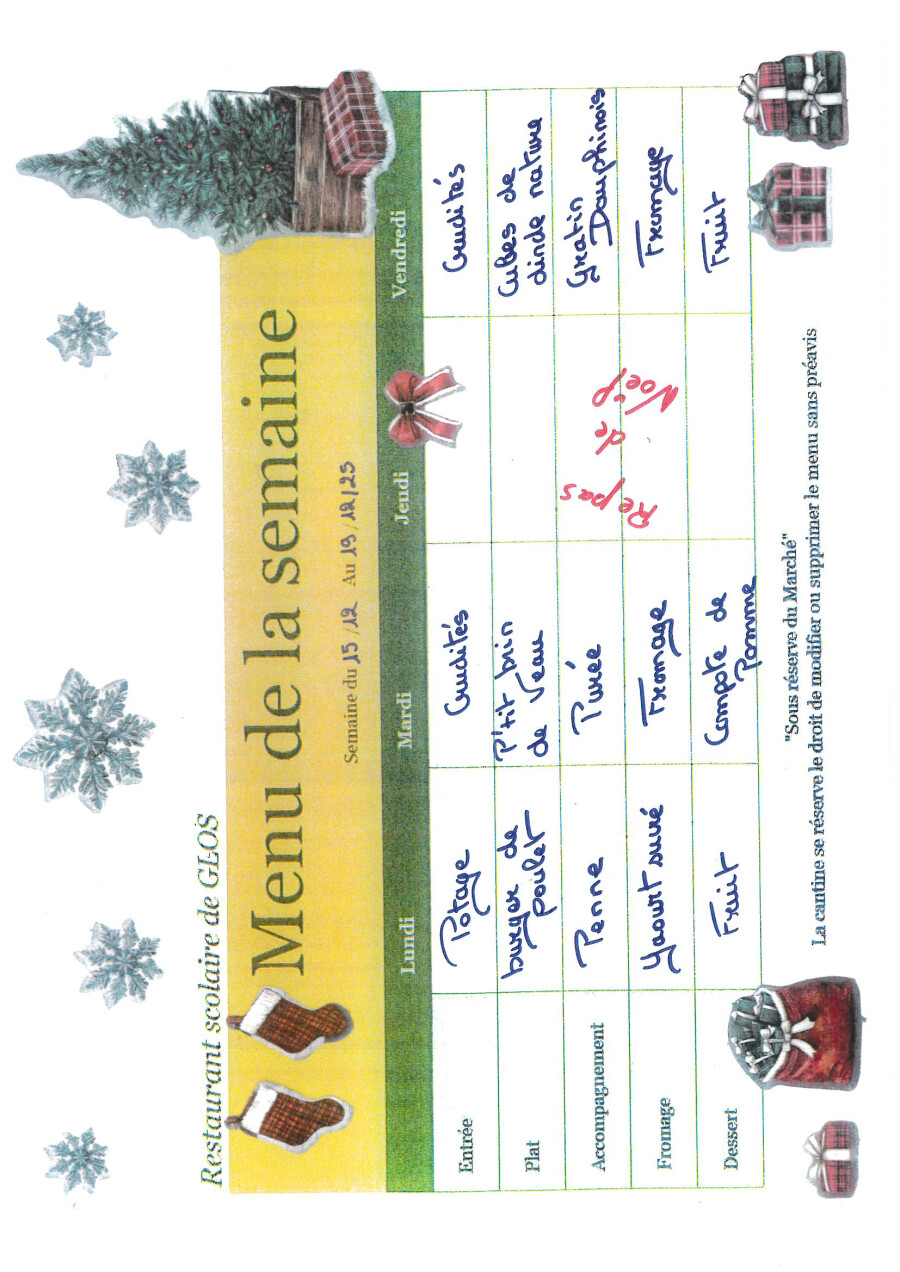 Restaurant scolaire de GLOS
Menu de la semaine
Semaine du 15/12 Au 19/12/25
Lundi Mardi Jeudi Vendredi
Entrée Potage Crudités Crudités
Plat burger de poulet P'tit brin de Veau Cubes de dinde nature
Accompagnement Penne Purée Gratin Dauphinois
Repas de Noël
Fromage Yaourt sucré Fromage Fromage
Dessert Fruit Compote de Pomme Fruit
"Sous réserve du Marché"
La cantine se réserve le droit de modifier ou supprimer le menu sans préavis